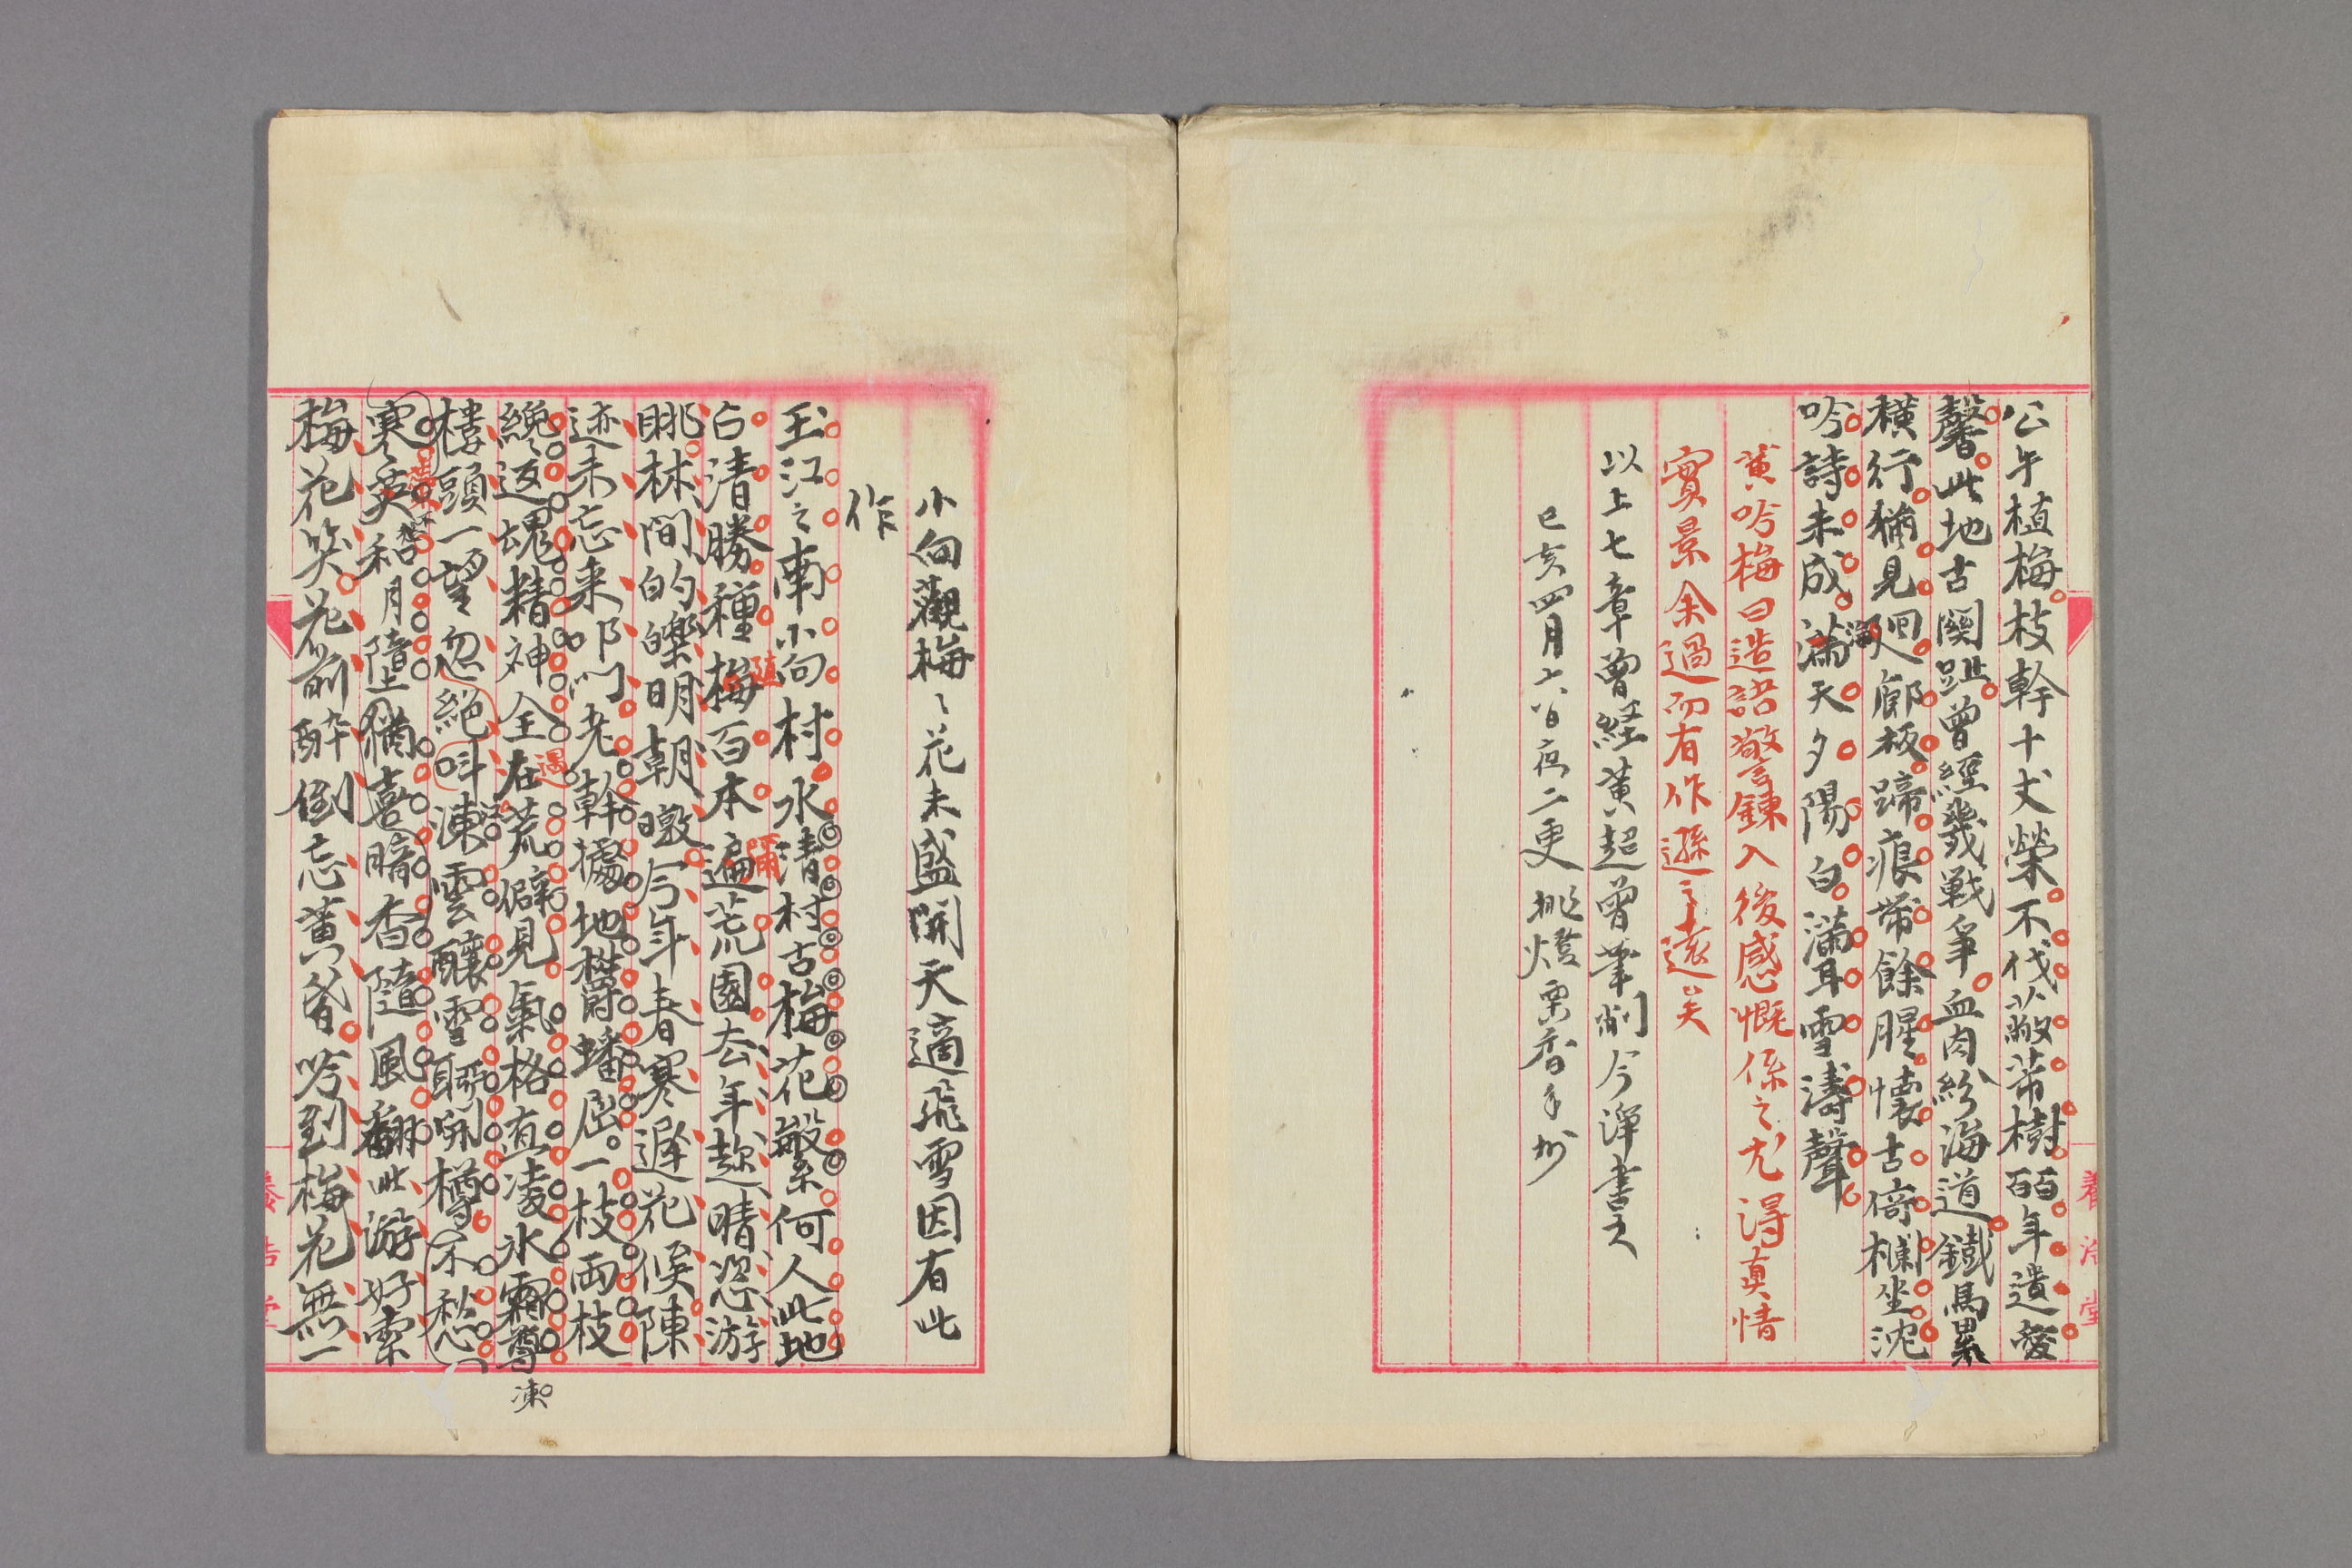 公手植梅枝幹十丈榮不伐蔽芾樹百年遺愛
馨此地古関趾曾經幾戰爭血肉紛海道鐵馬累
橫行猶見廻廊板蹄痕帯餘腥懐古倚欄坐沈
吟詩未成滿天夕陽白滿耳雪濤聲
黃吟梅曰造語警鍊入後感慨係之尤得真情
實景余過而有作遜之遠矣
以上七章曾経黃超曾筆削今渾書之
已亥四月十八日夜二更挑燈栗香手抄
養浩堂
小向觀梅々花未盛開天適飛雪因有此
作
玉江之南小向村水清村古梅花繁何人此地
占清勝種梅百本遍荒園去年趁晴恣游
随
彌
眺林間的皪明朝暾今年春寒遲花候陳
迹未忘来叩門老幹據地欝蟠屈一枝兩枝
纔返魂精神全在荒僻見氣格直凌氷霜尊
過
凍
樓頭一望忽絕叫凍雲釀雪聊開樽不愁
寒奚和月墮猶喜暗香隨風翻此游好索
梅花笑花前醉倒忘黃昏吟到梅花無一
養浩堂